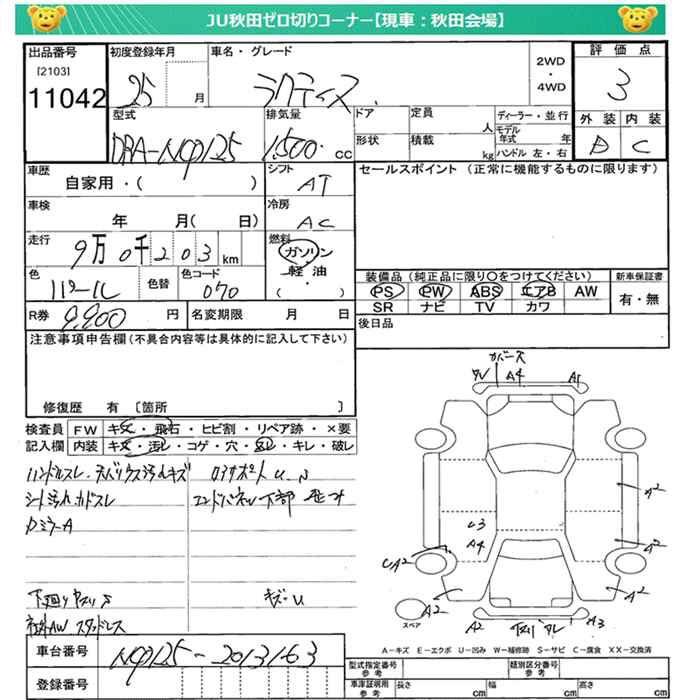 JU秋田ゼロ切りコーナー【現車：秋田会場】
出品番号 初度登録年月 車名・グレード 2WD・4WD 評価点
[2103]
11042 25 月 ラクティス 3
型式 排気量 ドア 定員 人 ディーラー・並行 外装 内装
DBA-NCP125 1,500 cc 形状 積載 kg モデル年式 年 ハンドル 左・右 D C
車歴 シフト セールスポイント （正常に機能するものに限ります）
自家用・（ ） AT
車検 冷房
年 月（ 日） AC
走行 燃料
9万0千203km ガソリン・軽油・（ ）
色 色替 色コード 装備品（純正品に限り○をつけてください） 新車保証書
パール 070 PS PW ABS エアB AW 有・無
SR ナビ TV カワ
R券 9,900 円 名変期限 月 日 後日品
注意事項申告欄（不具合内容等は具体的に記入して下さい）
修復歴 有 〔箇所 〕
検査員 FW キズ・飛石・ヒビ割・リペア跡・×要
記入欄 内装 キズ・汚レ・コゲ・穴・凹レ・キレ・破レ
ハンドルスレ
シート汚れ
カドスレ
コアサポート U
エンドパネル下部
下廻り
キズ-U
社外AW スタッドレス
カバース
A4 A1
A2
U3
A4
A2
UA2
A2 A2
A2 A3
スペア
A-キズ E-エクボ U-凹み W-補修跡 S-サビ C-腐食 XX-交換済
車台番号 NCP125-2013163
登録番号
型式指定番号 参考 類別区分番号 参考
車庫証明用 参考 長さ cm 幅 cm 高さ cm